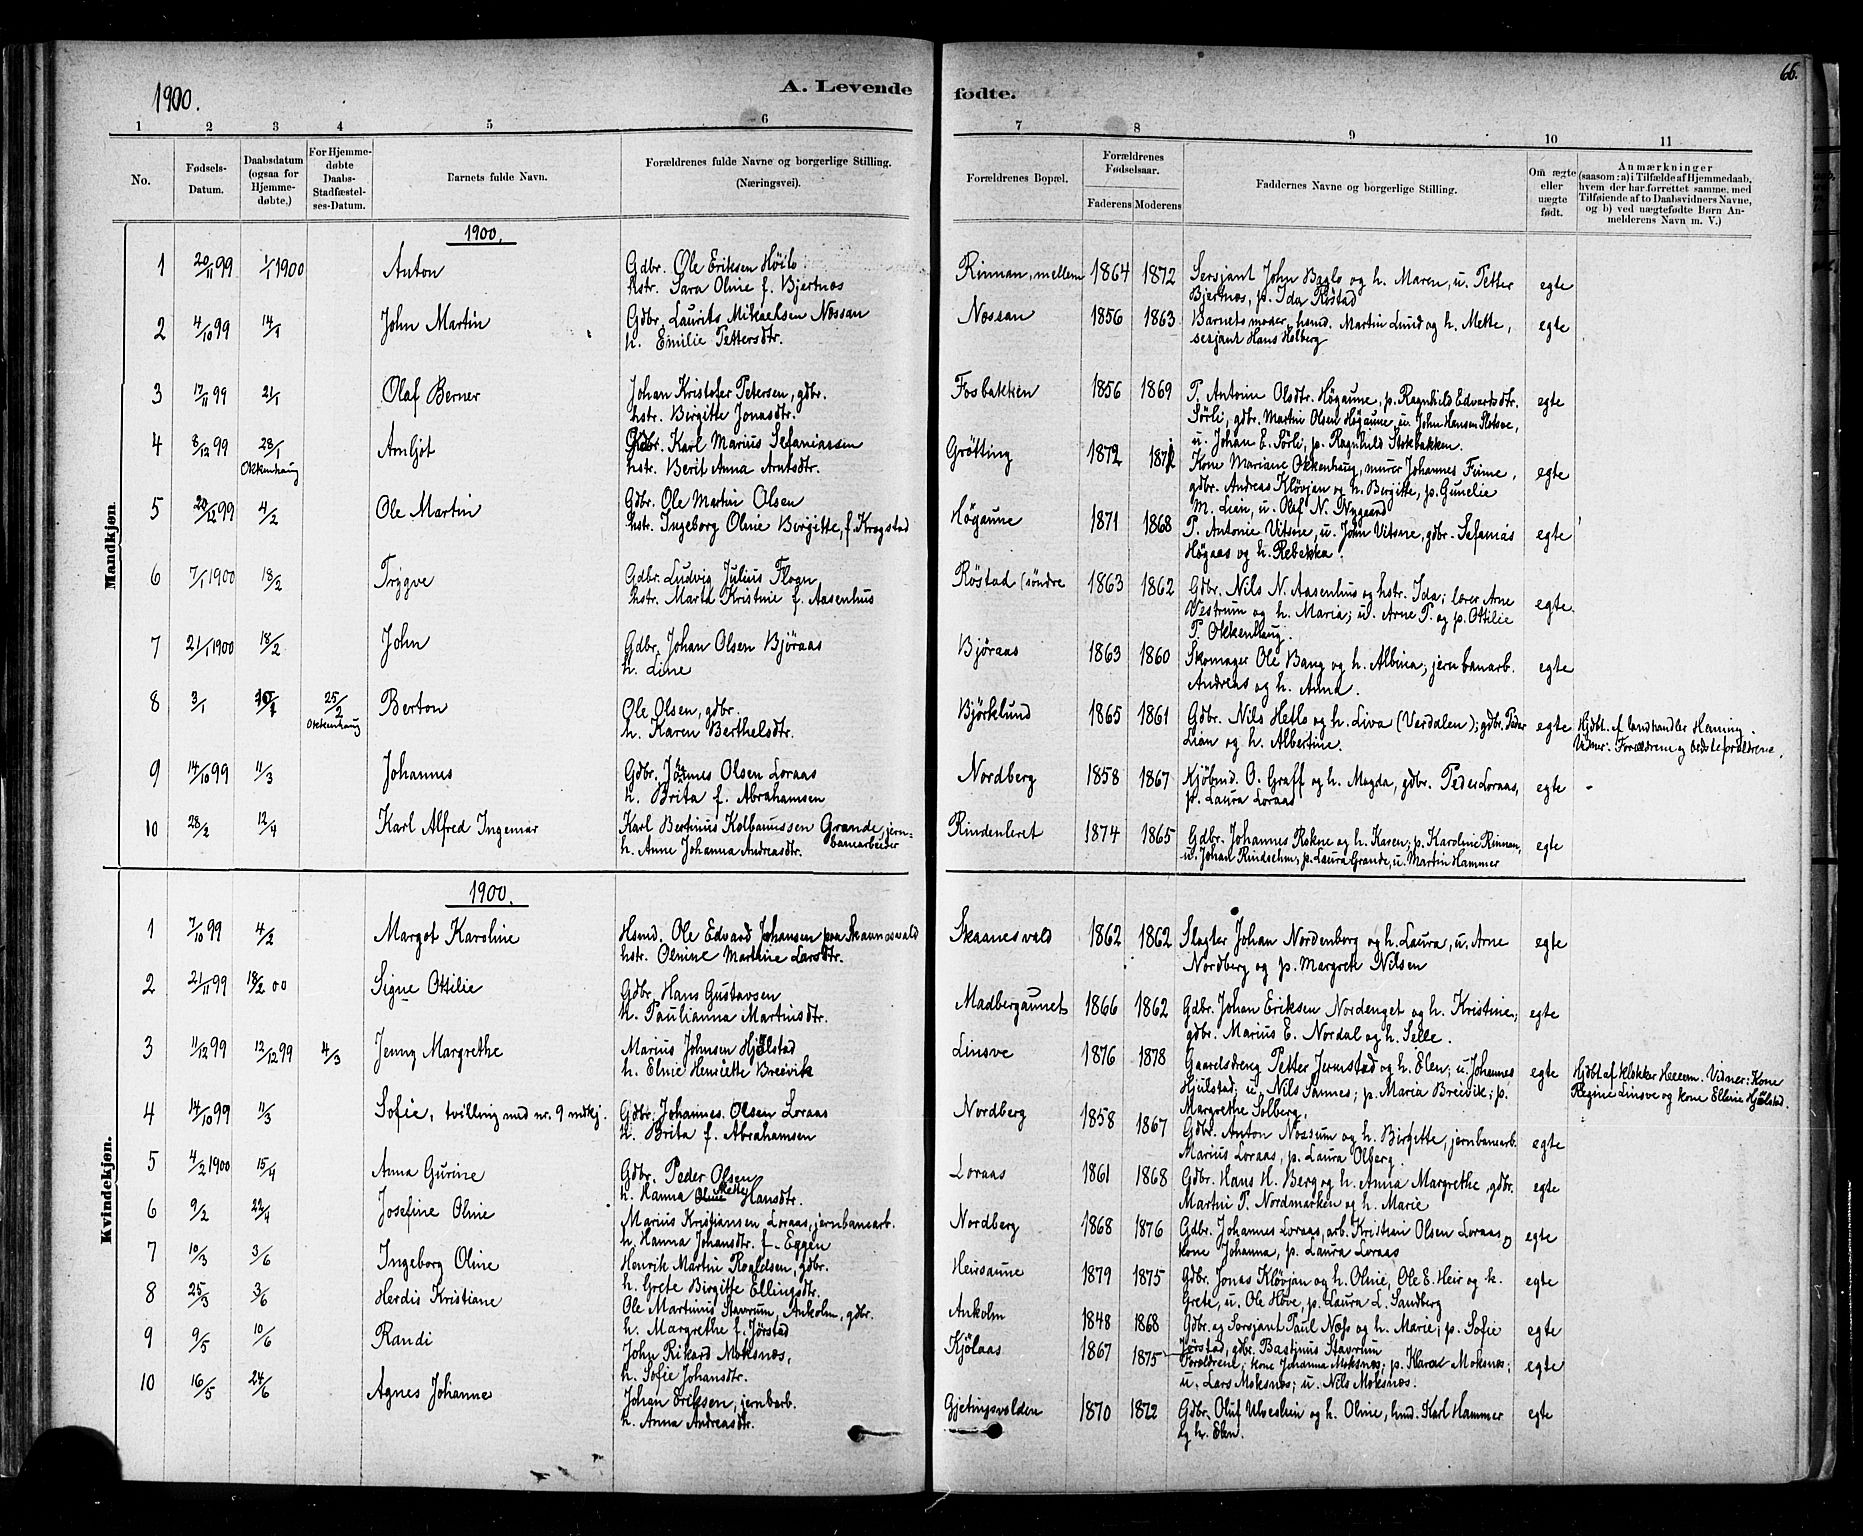 1900.
A. Levende
fødte.
66.
1 2 3 4 5 6 7 8 9 10 11
No.
Fødsels-Datum.
Daabsdatum (ogsaa for Hjemme-døbte,)
For Hjemme-døbte Daabs-Stadfæstel-ses-Datum.
Barnets fulde Navn.
Forældrenes fulde Navne og borgerlige Stilling.
(Næringsvei).
Forældrenes Bopæl.
Forældrenes Fødselsaar.
Faderens Moderens
Faddernes Navne og borgerlige Stilling.
Om ægte eller uægte født.
Anmærkninger
(saasom: a) i Tilfælde af Hjemmedaab,
hvem der har forrettet samme, med
Tilføiende af to Daabsvidners Navne,
og b) ved uægtefødte Børn An-
melderens Navn m. V.)
Mandkjøn.
1900.
1 20/11 99 1/1 1900 Anton Gdbr. Ole Eriksen Höilo. Rinnan, mellem 1864 1872 Sersjant John Baglo og h. Maren, u. Petter egte
hstr. Sara Oline f. Bjertnæs Bjertnæs, p. Ida Röstad
2 4/10 99 14/1 John Martin Gdbr. Laurits Mikaelsen Næssan Næssan 1856 1863 Barnets moder, hsmd. Martin Lund og h. Mette, egte
h. Emilie Pettersdtr. sesjant Hans Holberg
3 17/11 99 21/1 Olaf Berner Johan Kristofer Petersen, gdbr. Fosbakken 1856 1869 P. Antonie Olsdtr. Högaune, p. Ragnhild Edvartsdtr. egte
hstr. Birgitte Jonasdtr. Sörli, gdbr. Martin Olsen Högaune, u. John Hansen Slotsve,
u. Johan E. Sörli, p. Ragnhild Stokbakken.
4 8/12 99 28/1 Okkenhaug Arnljot Gdbr. Karl Marius Sefaniassen Grötting 1872 1872 Kone Mariane Okkenhaug, murer Johannes Finne, egte
hstr. Berit Anna Arntsdtr. gdbr. Andreas Klövjan og h. Bergitte, p. Gunelie
M. Lian, u. Olaf N. Nygaard
5 20/12 99 4/2 Ole Martin Gdbr. Ole Martin Olsen Högaune 1871 1868 P. Antonie Vitsne, u. John Vitsne, gdbr. Sefanias egte
hstr. Ingeborg Oline Birgitte, f. Kragstad Högaas og h. Rebekka.
6 7/1 1900 18/2 Trygve Gdbr. Ludvig Julius Floan Röstad (söndre 1863 1862 Gdbr. Nils N. Aasenhus og hstr. Ida; lærer Arne egte.
hstr. Marta Kristine f. Aasenhus Vestrum og h. Maria; u. Arne P. og p. Ottilie
P. Okkenhaug.
7 21/1 1900 18/2 John Gdbr. Johan Olsen Björaas Björaas 1863 1860 Skomager Ole Bang og h. Albina; jernbanarb. egte
h. Line Andreas og h. Anna.
8 3/1 25/2 Okkenhaug Berton Ole Olsen, gdbr. Björklund 1865 1861 Gdbr. Nils Heflo og h. Liva (Verdalen); gdbr. Peder egte Hjdbt. af landhandler Heming.
h. Karen Berthelsdtr. Lian og h. Albertine. Vidner: Forældrene og bedsteforældrene.
9 14/10 99 11/3 Johannes Gdbr. Johannes Olsen Loraas Nordberg 1858 1867 Kjöbmd. O. Graff og h. Magda, gdbr. Peder Loraas, egte
h. Brita f. Abrahamsen p. Laura Loraas
10 28/2 12/4 Karl Alfred Ingemar Karl Bertinius Kolbanussen Grande, jern- Rindenleret 1874 1865 Gdbr. Johannes Rokne og h. Karen; p. Karoline Rinnan, egte
h. Anne Johanna Andreasdtr. banearbeider u. Johan Rindsehm, p. Laura Grande, u. Martin Hammer
Kvindekjøn.
1900.
1 7/10 99 4/2 Margot Karoline Hsmd. Ole Edvard Johansen paa Skaanesvald Skaanesvald 1862 1862 Slagter Johan Nordenborg og h. Laura, u. Arne egte
hstr. Oline Martine Larsdtr. Nordberg og p. Margrete Nilsen
2 21/11 99 18/2 00 Signe Ottilie Gdbr. Hans Gustavsen Madbergaunet 1866 1862 Gdbr. Johan Eriksen Nordenget og h. Kristine; egte
h. Paulianna Martinsdtr. gdbr. Marius E. Nordal og h. Selle.
3 11/12 99 12/12 99 4/3 Jenny Margrethe Marius Johnsen Hjelstad Linsve 1876 1878 Gaardsdreng Petter Jermstad og h. Elen; u. Johannes egte Hjdbt af klokker Hellem. Vidner: Kone
h. Eline Henriette Breivik Hjulstad, u. Nils Sannes; p. Maria Breivik; p. Regine Linsve og kone Elline Hjelstad.
Margrethe Solberg.
4 14/10 99 11/3 Sofie, tvilling med nr. 9 mdkj. Gdbr. Johannes Olsen Loraas Nordberg 1858 1867 Gdbr. Anton Nossum og h. Birgitte, jernbanarb. egte
h. Brita f. Abrahamsen Marius Loraas, p. Laura Olberg.
5 4/2 1900 15/4 Anna Gurine Gdbr. Peder Olsen Loraas 1861 1868 Gdbr. Hans H. Berg og h. Anna Margrethe, gdbr. egte
h. Hanna Mette Hansdtr. Martin P. Nordmarken og h. Marie
6 9/2 22/4 Josefine Oline Marius Kristiansen Loraas, jernbanearb. Nordberg 1868 1876 Gdbr. Johannes Loraas, arb. Kristian Olsen Loraas og egte
h. Hanna Johansdtr. f. Eggen kone Johanna, p. Laura Loraas
7 10/3 3/6 Ingeborg Oline Henrik Martin Roaldsen, gdbr. Heirsaune 1879 1875 Gdbr. Jonas Klövjan og h. Oline, Ole E. Heir og k. egte
h. Grete Birgitte Ellingsdtr. Grete, u. Ole Hove, p. Laura L. Sandberg
8 25/3 3/6 Herdis Kristiane Ole Martinus Stavrum, Ankolm, gdbr. Ankolm 1848 1868 Gdbr. og Sersjant Paul Næss og h. Marie; p. Sofie egte
h. Margrethe f. Jörstad Jörstad, gdbr. Bastinus Stavrum
9 9/5 10/6 Randi John Rikard Moksnæs, Kjölaas 1867 1875 Forældrene; kone Johanna Moksnæs; p. Karen Moksnæs; egte
h. Sofie Johansdtr. u. Lars Moksnæs; u. Nils Moksnæs.
10 16/5 24/6 Agnes Johanne Johan Eriksen, jernbarb. Gjetingsvolden 1870 1872 Gdbr. Oluf Ulveslien og h. Oline, hmd. Karl Hammer egte
h. Anna Andreasdtr. og h. Elen.